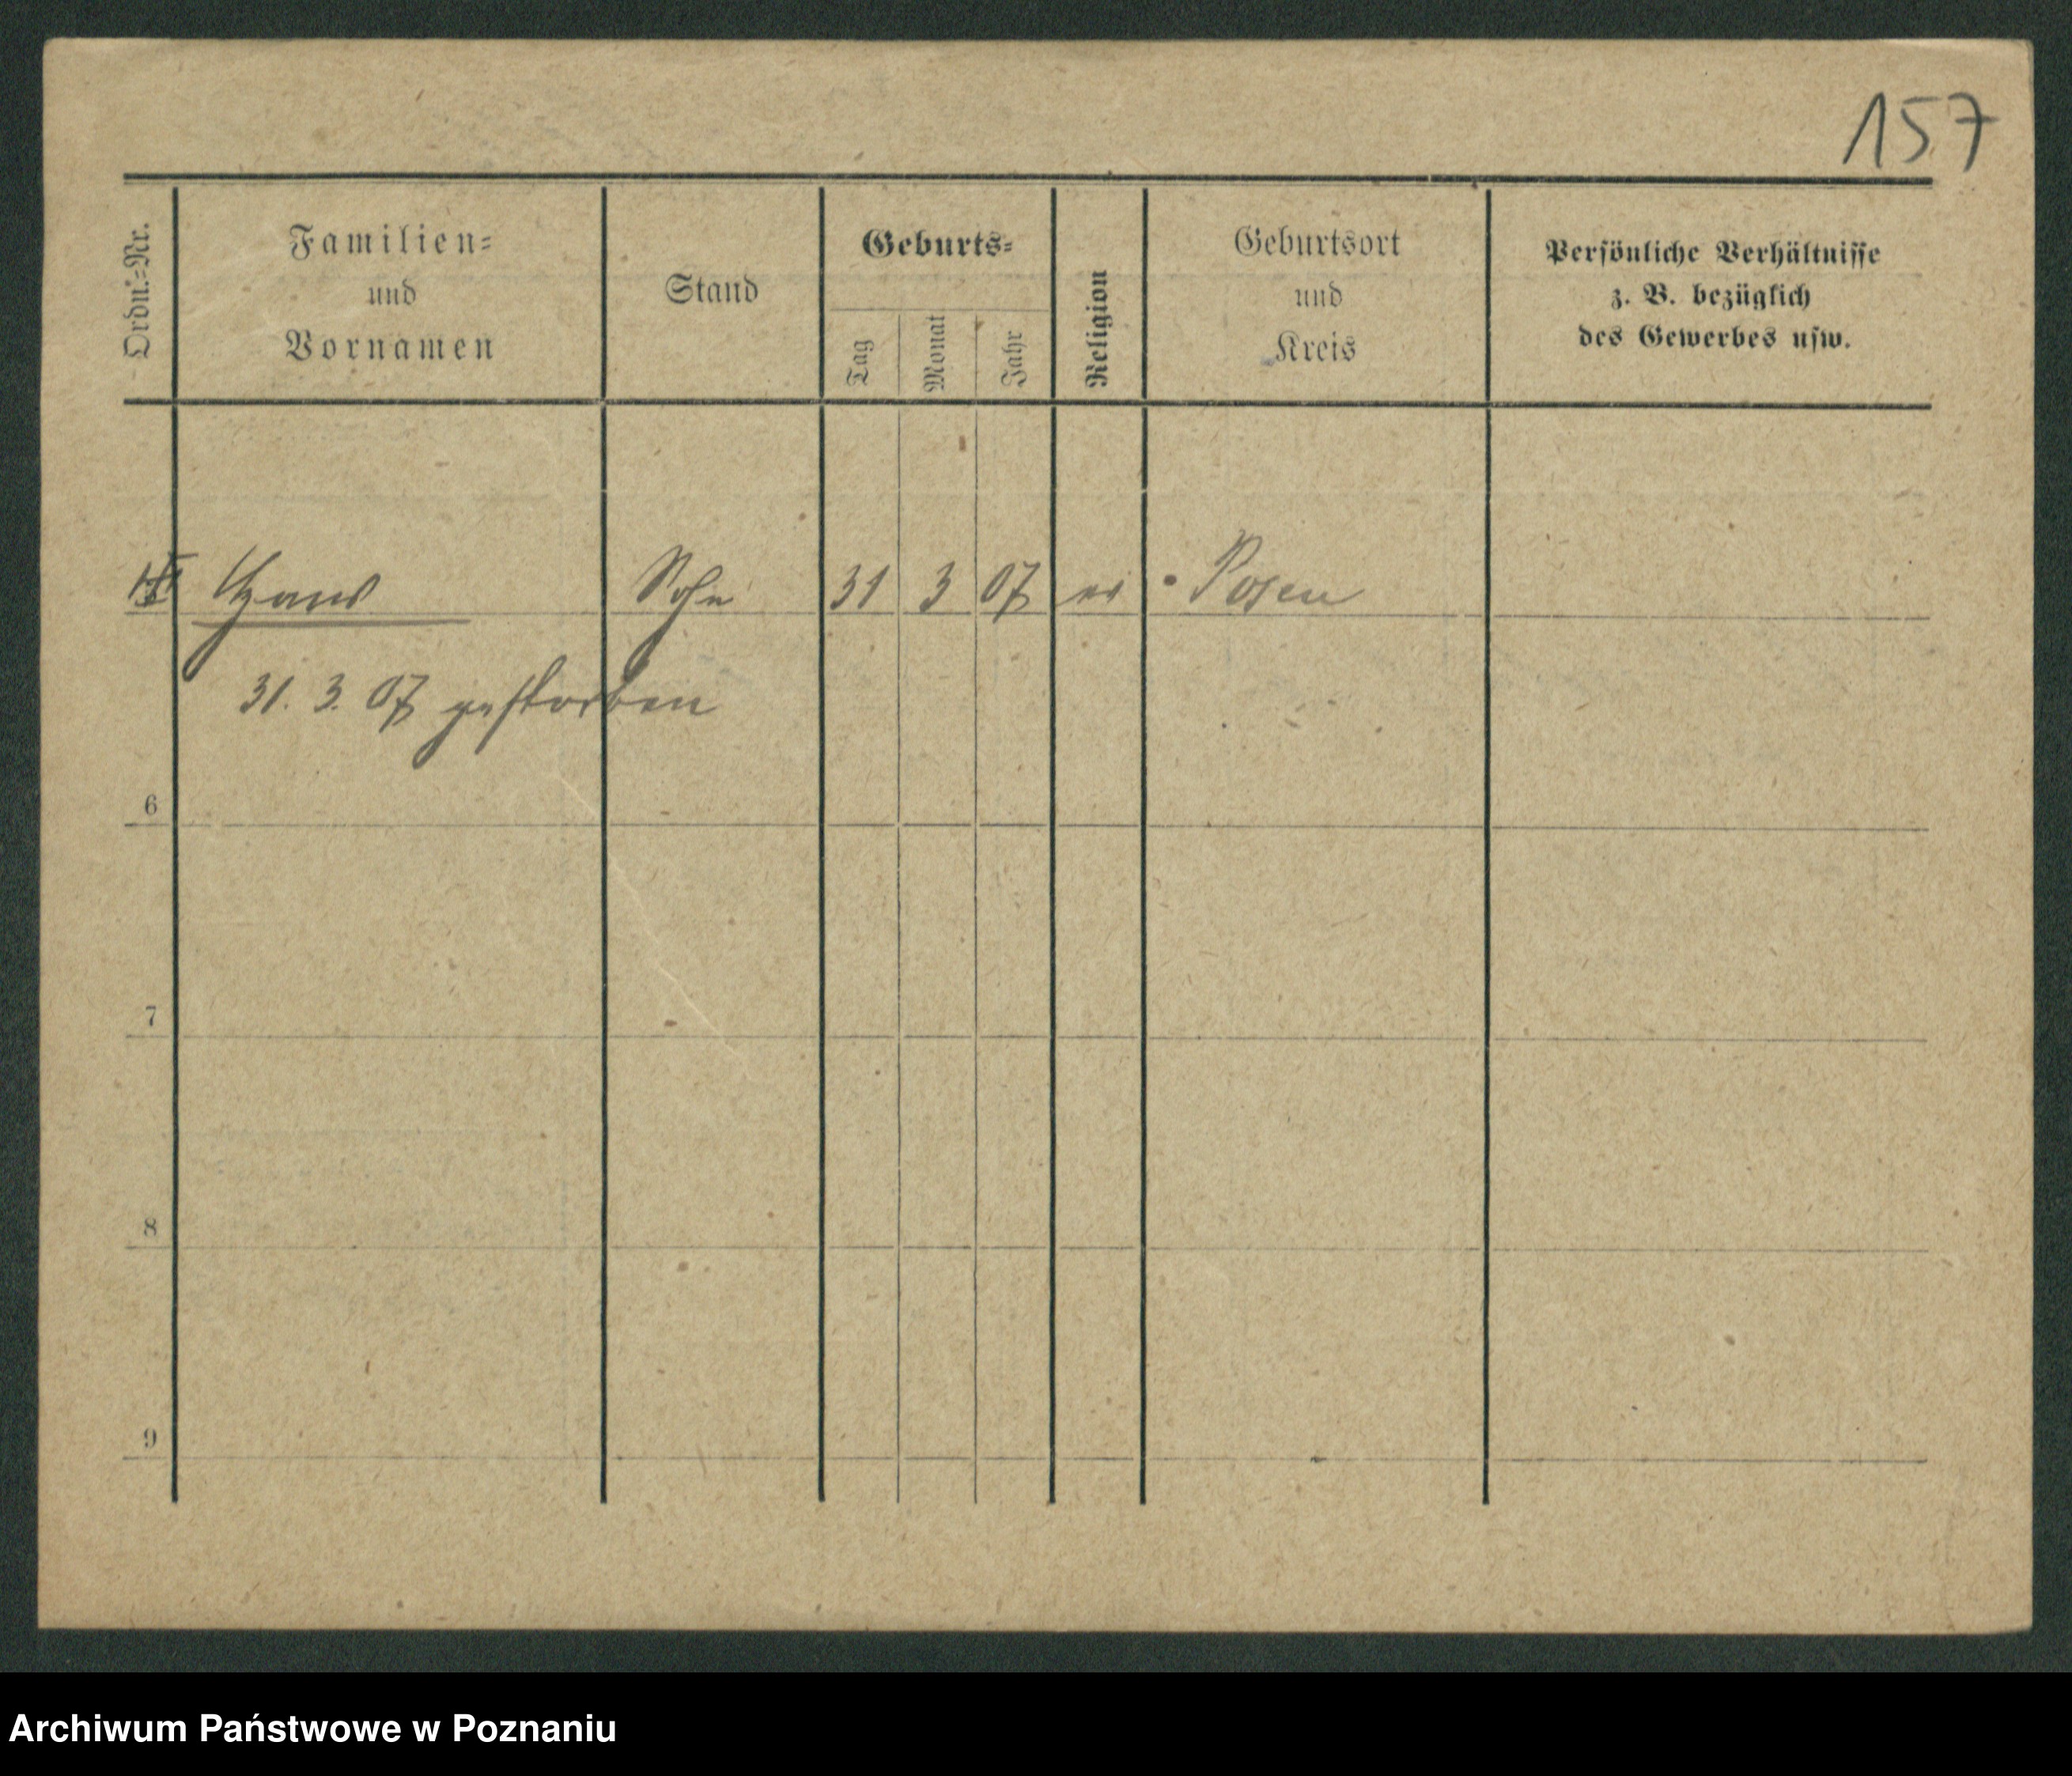 157
Ordn.=Nr.
Familien=
und
Vornamen
Stand
Geburts=
Tag
Monat
Jahr
Religion
Geburtsort
und
Kreis
Persönliche Verhältnisse
z. B. bezüglich
des Gewerbes usw.
Hans Sohn 31 3 07 Posen
31. 3. 07 gestorben
6
7
8
9
Archiwum Państwowe w Poznaniu